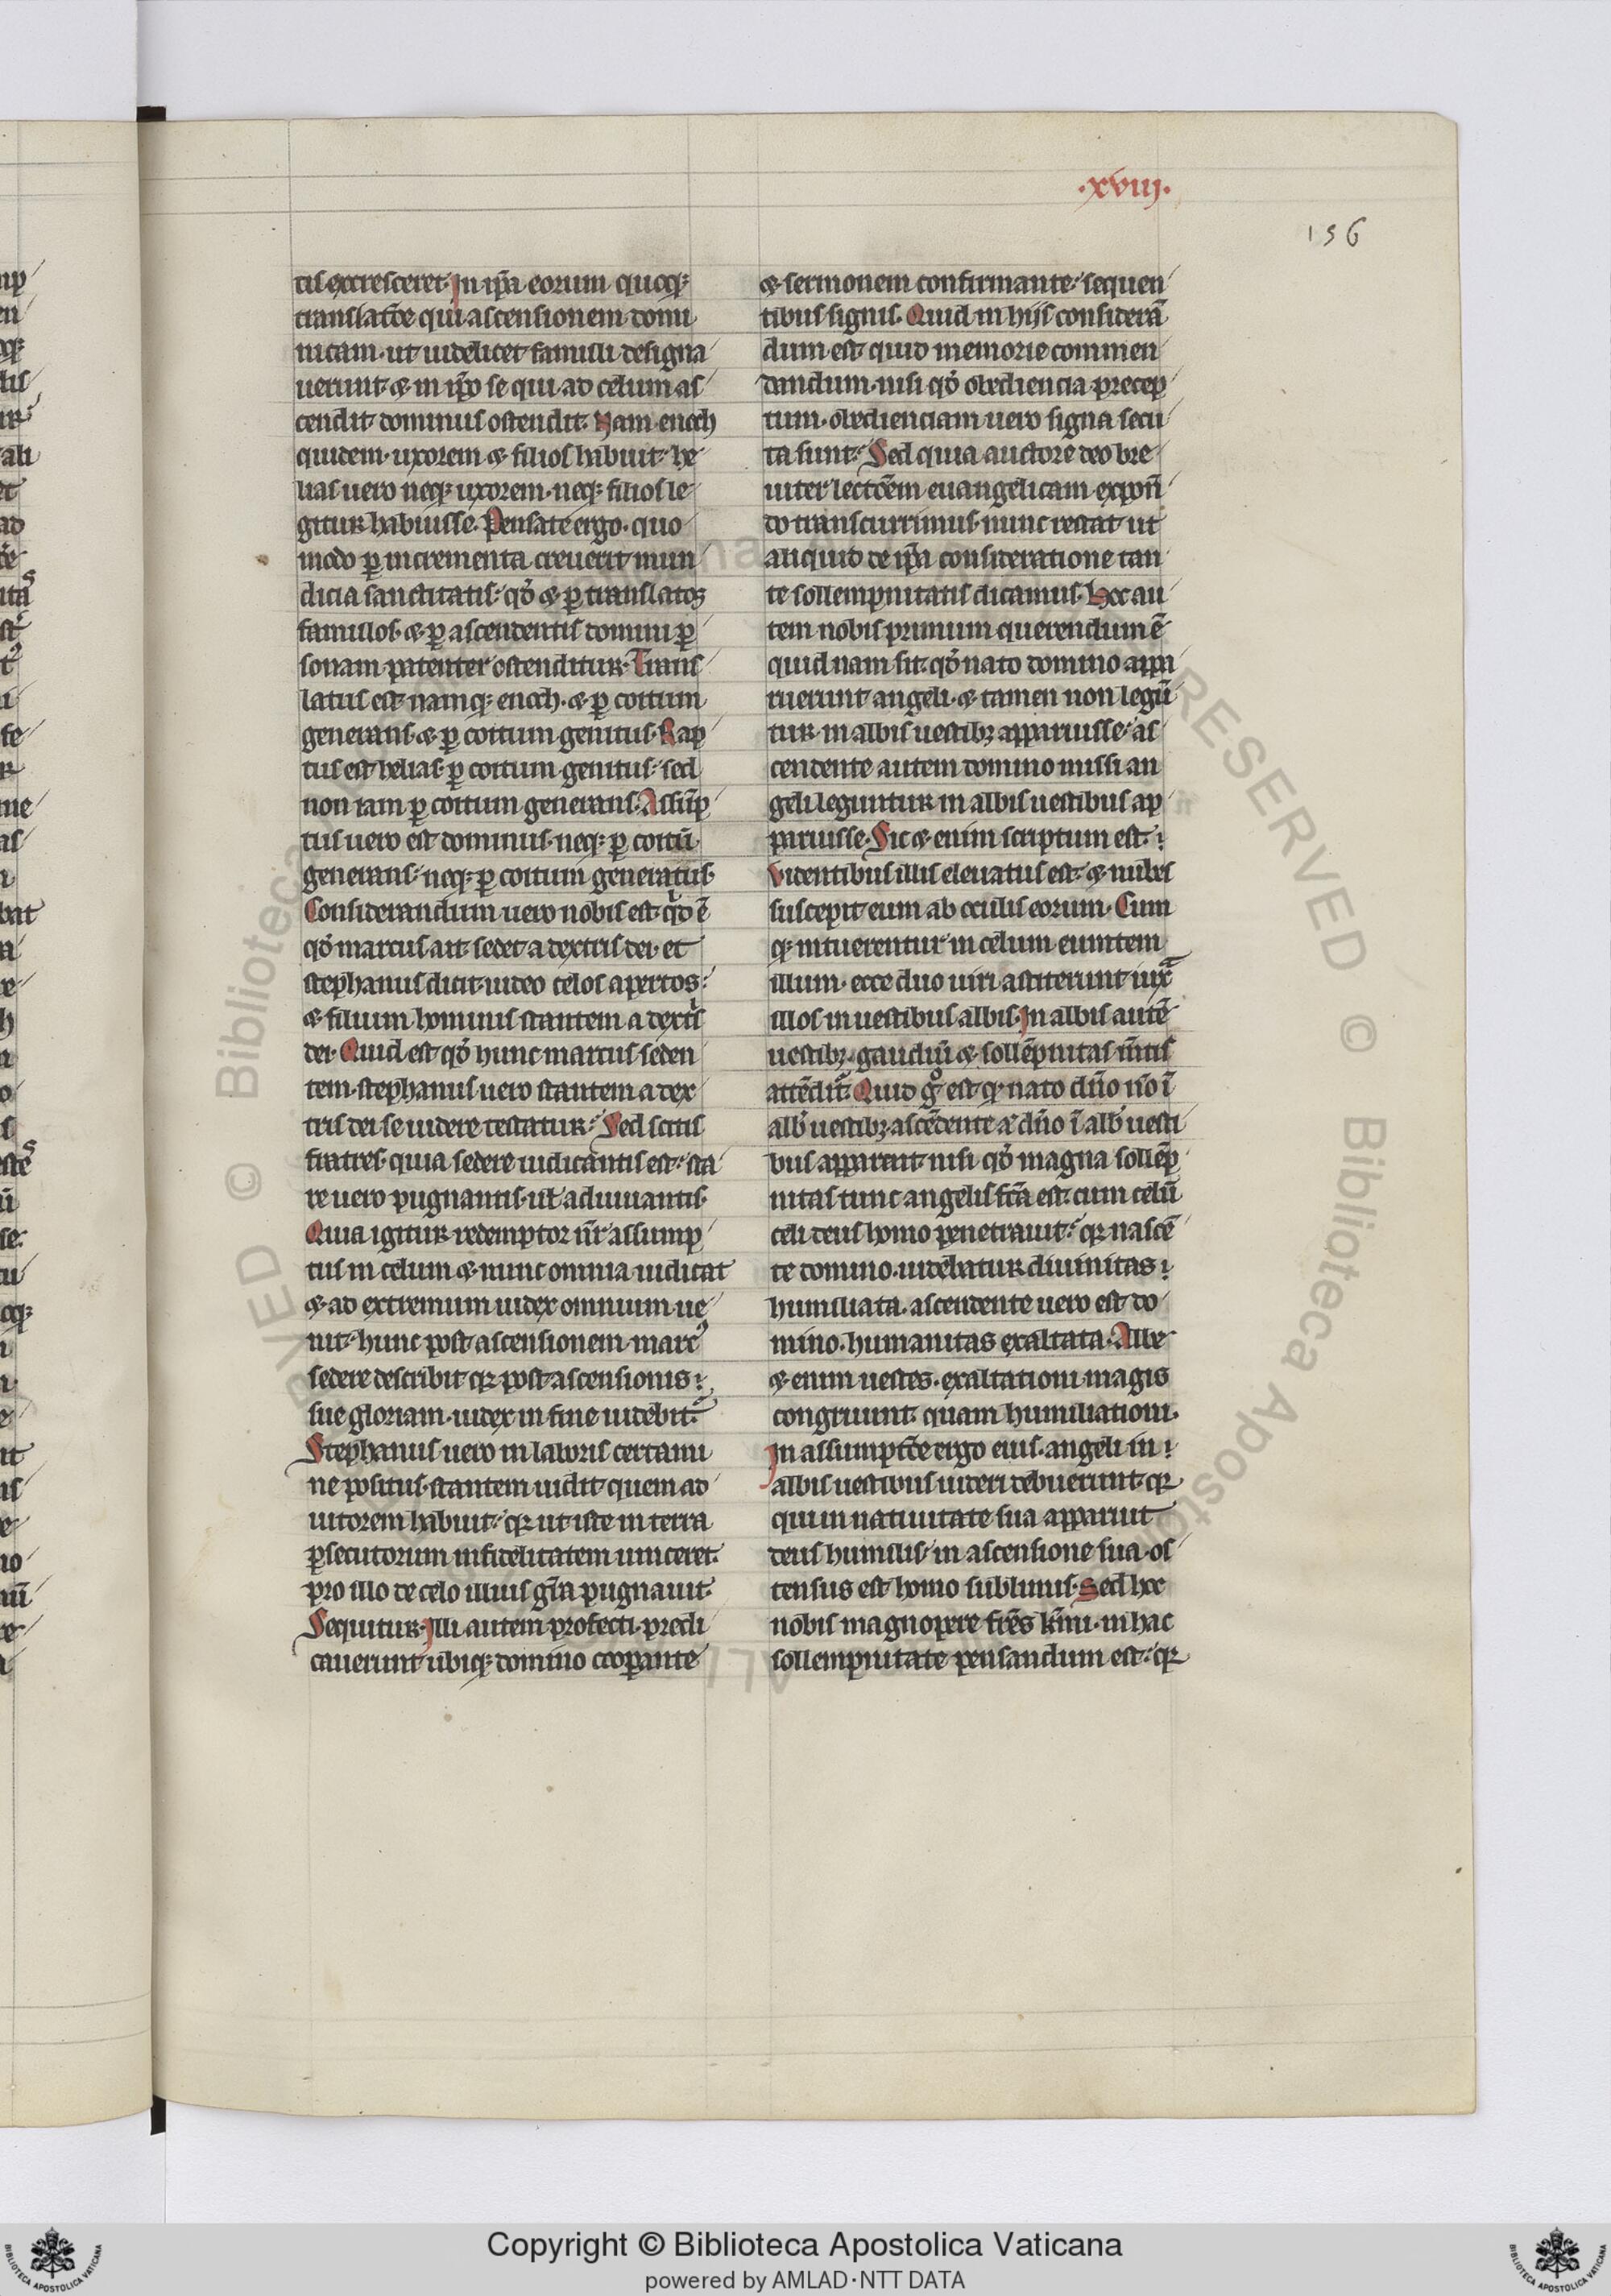 .xviij.
156
tis excresceret. In ip̄a eorum quoqꝫ
translatōe qui ascensionem domi
nicam. ut uidelicet famuli designa
uerunt ⁊ in ip̄o se qui ad celum as
cendit dominus ostendit. Nam enoch
quidem. uxorem ⁊ filios habuit. he
lias uero neqꝫ uxorem. neqꝫ filios le
gitur habuisse. Pensate ergo. quo
modo ꝑ incrementa creuerit mun
dicia sanctitatis. qd̓ ⁊ ꝑ translatos
famulos. ⁊ ꝑ ascendentis domini ꝑ
sonam patenter ostenditur. Trans
latus est namqꝫ enoch. ⁊ ꝑ coitum
generans. ⁊ ꝑ coitum genitus. Rap
tus est helias. ꝑ coitum genitus. sed
non iam ꝑ coitum generans. Assūp
tus uero est dominus. neqꝫ ꝑ coitū
generans. neqꝫ ꝑ coitum generatus.
Considerandum uero nobis est qd ē
qd̓ marcus ait. sedet a dextris dei. et
stephanus dicit. uideo celos apertos.
⁊ filium hominis stantem a dextͥs
dei. Quid est qd̓ hunc marcus seden
tem. stephanus uero stantem a dex
tris dei se uidere testatur. Sed scitis
fratres. quia sedere iudicantis est. sta
re uero pugnantis. uł adiuuantis.
Quia igitur redemptor nr̄ assump
tus in celum ⁊ nunc omnia iudicat
⁊ ad extremum iudex omnium ue
nit. hunc post ascensionem marcꝰ
sedere describit. qꝛ post ascensionis
sue gloriam. iudex in fine uidebit᷑.
Stephanus uero in laboris certami
ne positus. stantem uidit quem ad
iutorem habuit. qꝛ ut iste in terra
ꝑsecutorum infidelitatem uinceret.
pro illo de celo illius gr̄a pugnauit.
Sequitur. Illi autem profecti. predi
cauerunt ubiqꝫ domino cooꝑante
⁊ sermonem confirmante. sequen
tibus signis. Quid in hijs considerā
dum est. quid memorie commen
dandum. nisi qd̓ obediencia precep
tum. obedienciam uero signa secu
ta sunt. Sed quia auctore deo bre
uiter lectōem euangelicam expon̄
do transcurrimus. nunc restat ut
aliquid de ip̄a consideratione tan
te sollempnitatis dicamus. Hoc au
tem nobis primum querendum ē
quid nam sit. qd̓ nato domino appa
ruerunt angeli. ⁊ tamen non legū
tur. in albis uestibꝫ apparuisse. as
cendente autem domino missi an
geli leguntur in albis uestibus ap
paruisse. Sic ⁊enim scriptum est.
Videntibus illis eleuatus est. ⁊ nubes
suscepit eum ab oculis eorum. Cum
qꝫ intuerentur in celum euntem
illum. ecce duo uiri astiterunt iuxᵃ
illos in uestibus albis. In albis autē
uestibꝫ. gaudiū ⁊ sollēpnitas m̄tis
attēdit᷑. Quid gͦ est. qꝫ nato dn̄o nō ī
alb̓ uestibꝫ. ascēdente aͭ dn̄o ī alb̓ uesti
bus apparent. nisi qd̓ magna sollēp
nitas tunc angelis fc̄a est. cum celū
celi deus homo penetrauit. qꝛ nascē
te domino. uidebatur diuinitas
humiliata. ascendente uero est do
mino. humanitas exaltata. Albe
⁊enim uestes. exaltationi magis
congruunt. quam humiliationi.
In assumptōe ergo eius. angeli in
albis uestibus uideri debuerunt. qꝛ
qui in natiuitate sua apparuit
deus humilis. in ascensione sua. os
tensus est homo sublimis. Sed hoc
nobis magnopere fr̄es kr̄mi. in hac
sollempnitate pensandum est. qꝛ
Copyright © Biblioteca Apostolica Vaticana
powered by AMLAD·NTT DATA